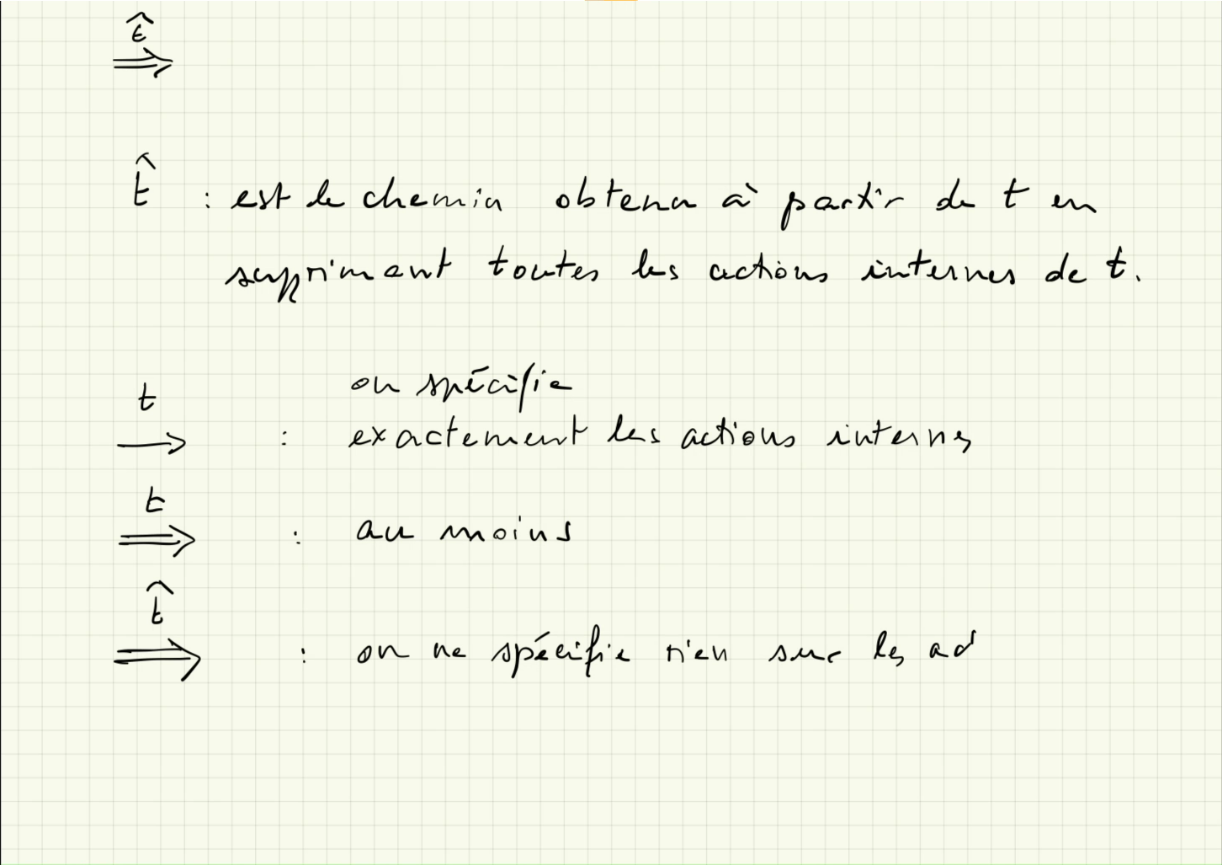 t̂
⟹
t̂ : est le chemin obtenu à partir de t en
supprimant toutes les actions internes de t.
on spécifie
t
→ : exactement les actions internes
t
⟹ : au moins
t̂
⟹ : on ne spécifie rien sur les act